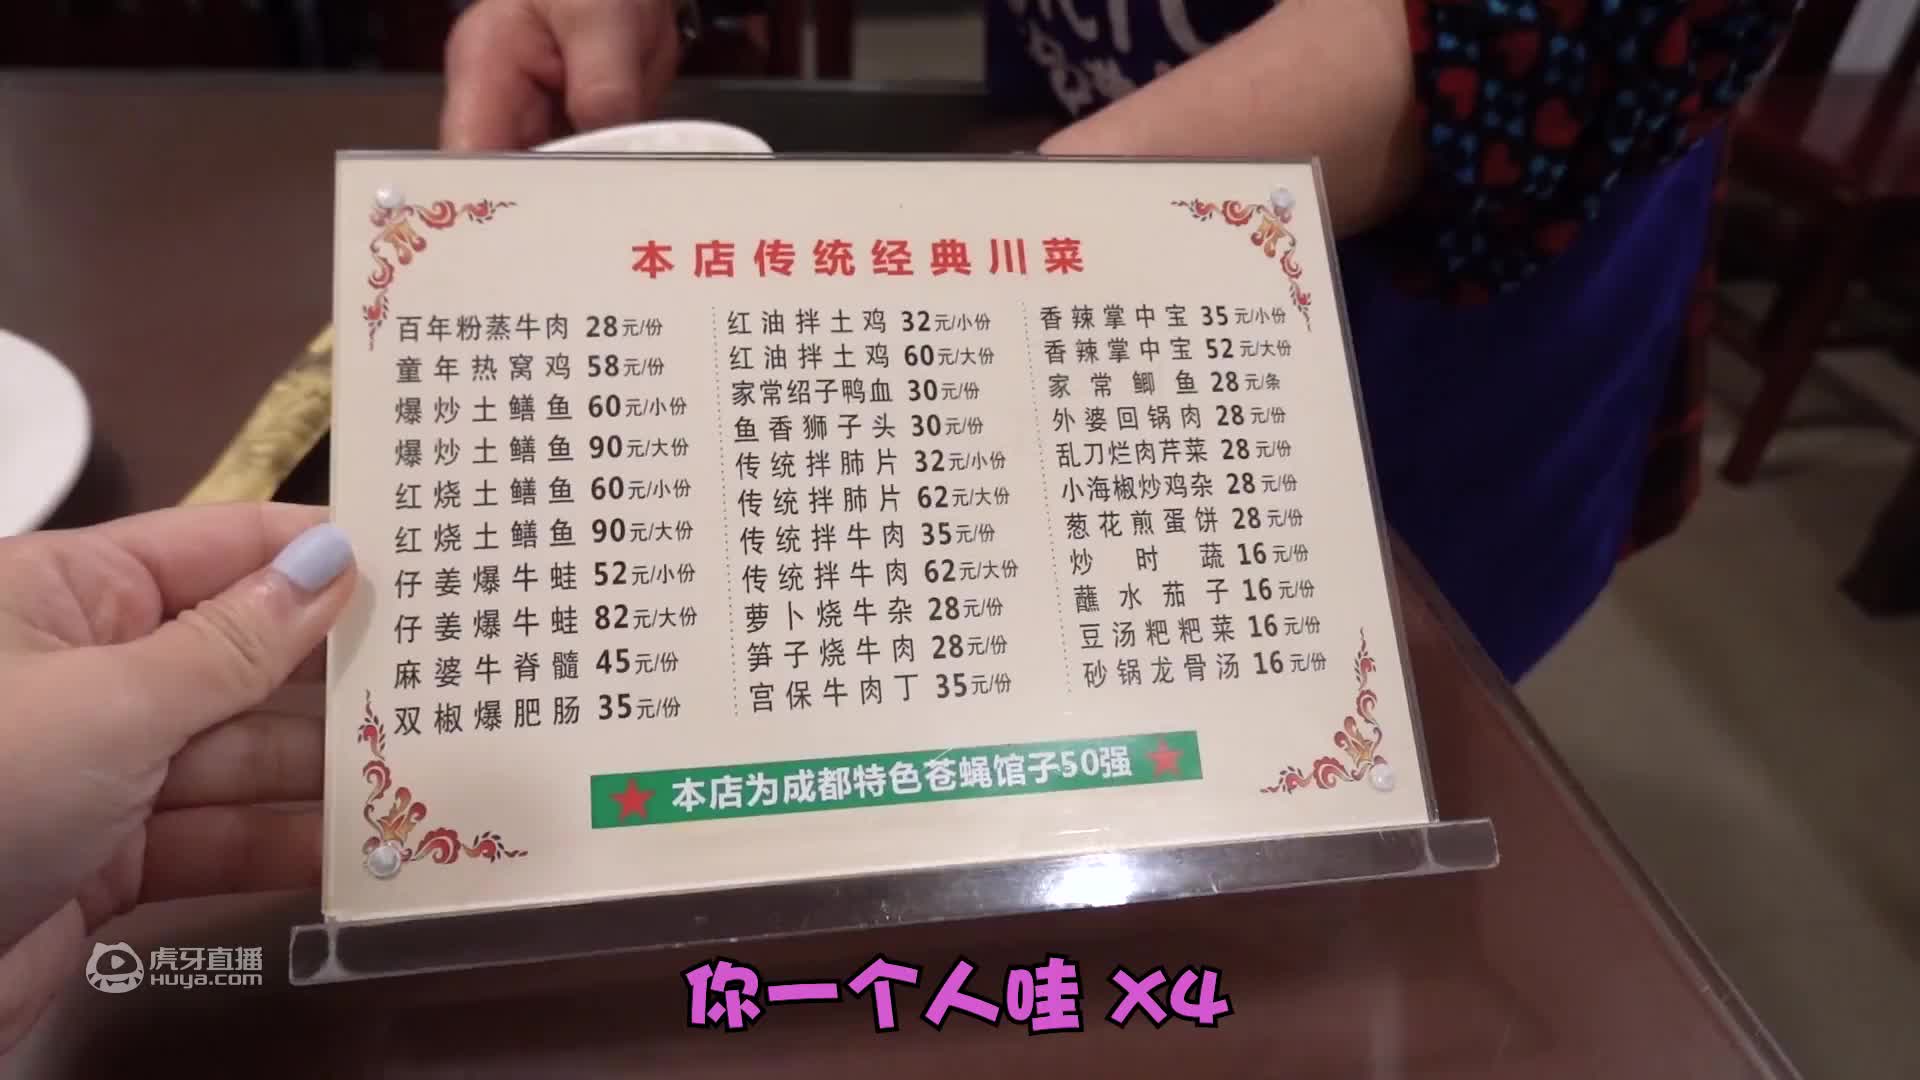 本店传统经典川菜
百年粉蒸牛肉 28元/份
童年热窝鸡 58元/份
爆炒土鳝鱼 60元/小份
爆炒土鳝鱼 90元/大份
红烧土鳝鱼 60元/小份
红烧土鳝鱼 90元/大份
仔姜爆牛蛙 52元/小份
仔姜爆牛蛙 82元/大份
麻婆牛脊髓 45元/份
双椒爆肥肠 35元/份
红油拌土鸡 32元/小份
红油拌土鸡 60元/大份
家常绍子鸭血 30元/份
鱼香狮子头 30元/份
传统拌肺片 32元/小份
传统拌肺片 62元/大份
传统拌牛肉 35元/份
传统拌牛肉 62元/大份
萝卜烧牛杂 28元/份
笋子烧牛肉 28元/份
宫保牛肉丁 35元/份
香辣掌中宝 35元/小份
香辣掌中宝 52元/大份
家常鲫鱼 28元/条
外婆回锅肉 28元/份
乱刀烂肉芹菜 28元/份
小海椒炒鸡杂 28元/份
葱花煎蛋饼 28元/份
炒时蔬 16元/份
蘸水茄子 16元/份
豆汤粑粑菜 16元/份
砂锅龙骨汤 16元/份
本店为成都特色苍蝇馆子50强
虎牙直播
HUYA.com
你一个人哇 X4